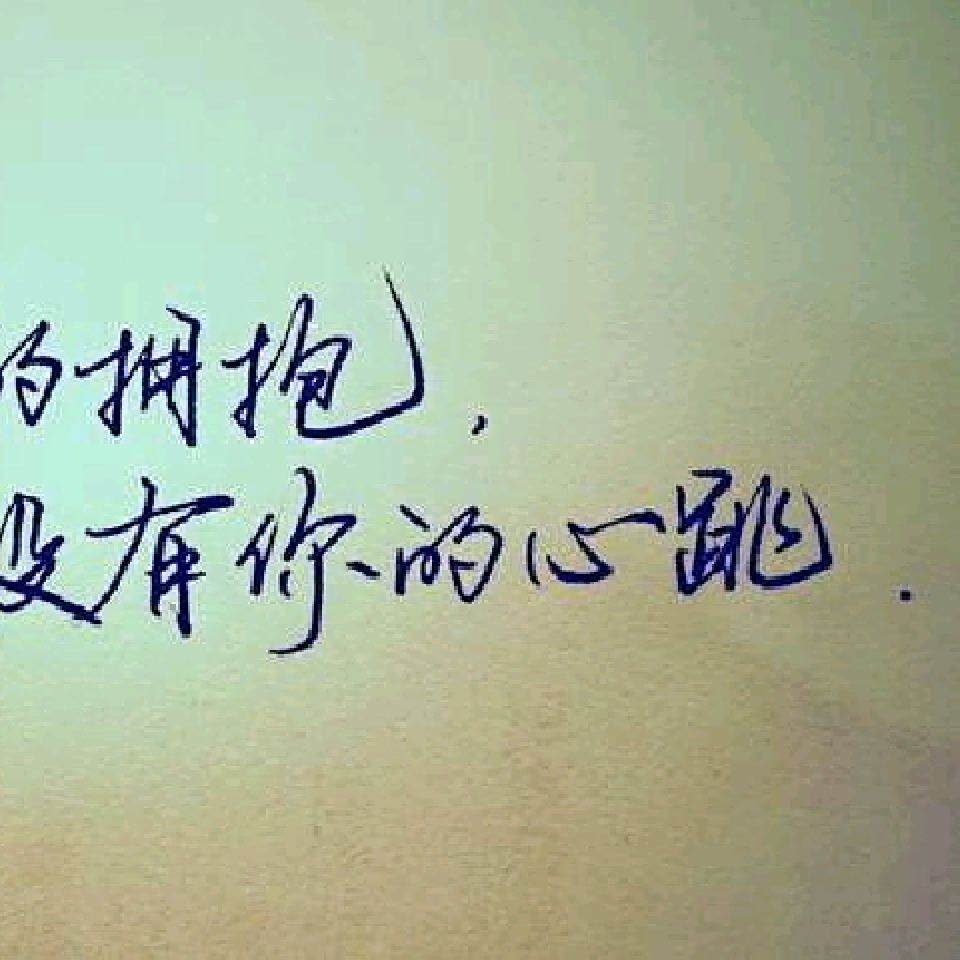 的拥抱,
没有你的心跳.